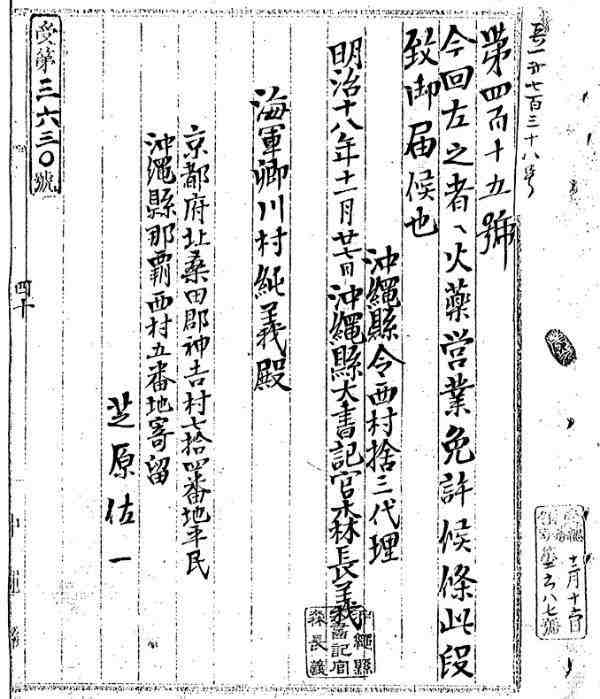 第四百十五號
今回左之者ヘ火藥営業免許候條此段
致御届候也
沖繩縣令西村捨三代理
明治十八年十一月廿七日沖繩縣大書記官森長義
沖繩縣
大書記官
森長義
海軍卿川村純義殿
京都府北桑田郡神吉村七拾四番地平民
沖繩縣那覇西村五番地寄留
芝原佐一
受第三六三〇號
四十